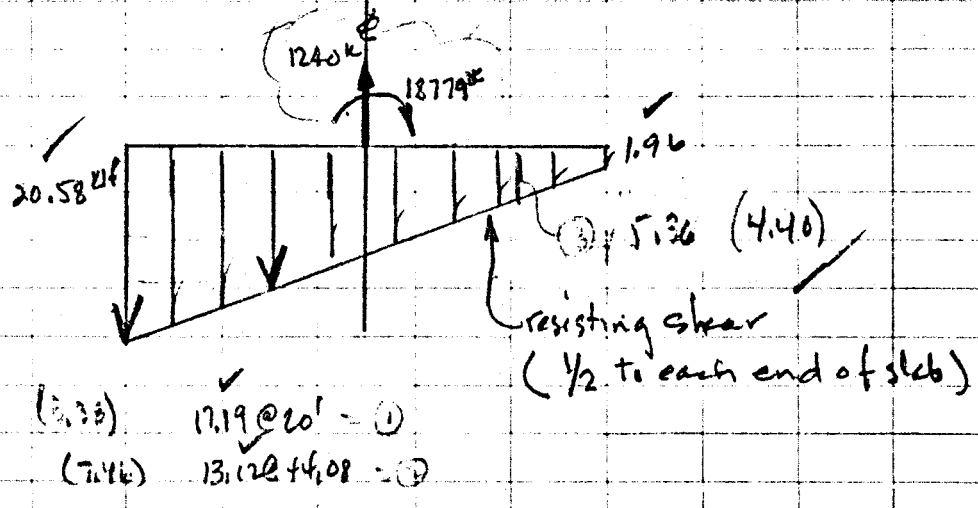 ℄
1240k
18779
1.96
20.58 klf
③ 5.36 (4.40)
resisting shear
(1/2 to each end of slab)
17.19 @ 20' - ①
(7.46) 13.12 @ +4.08 - ②